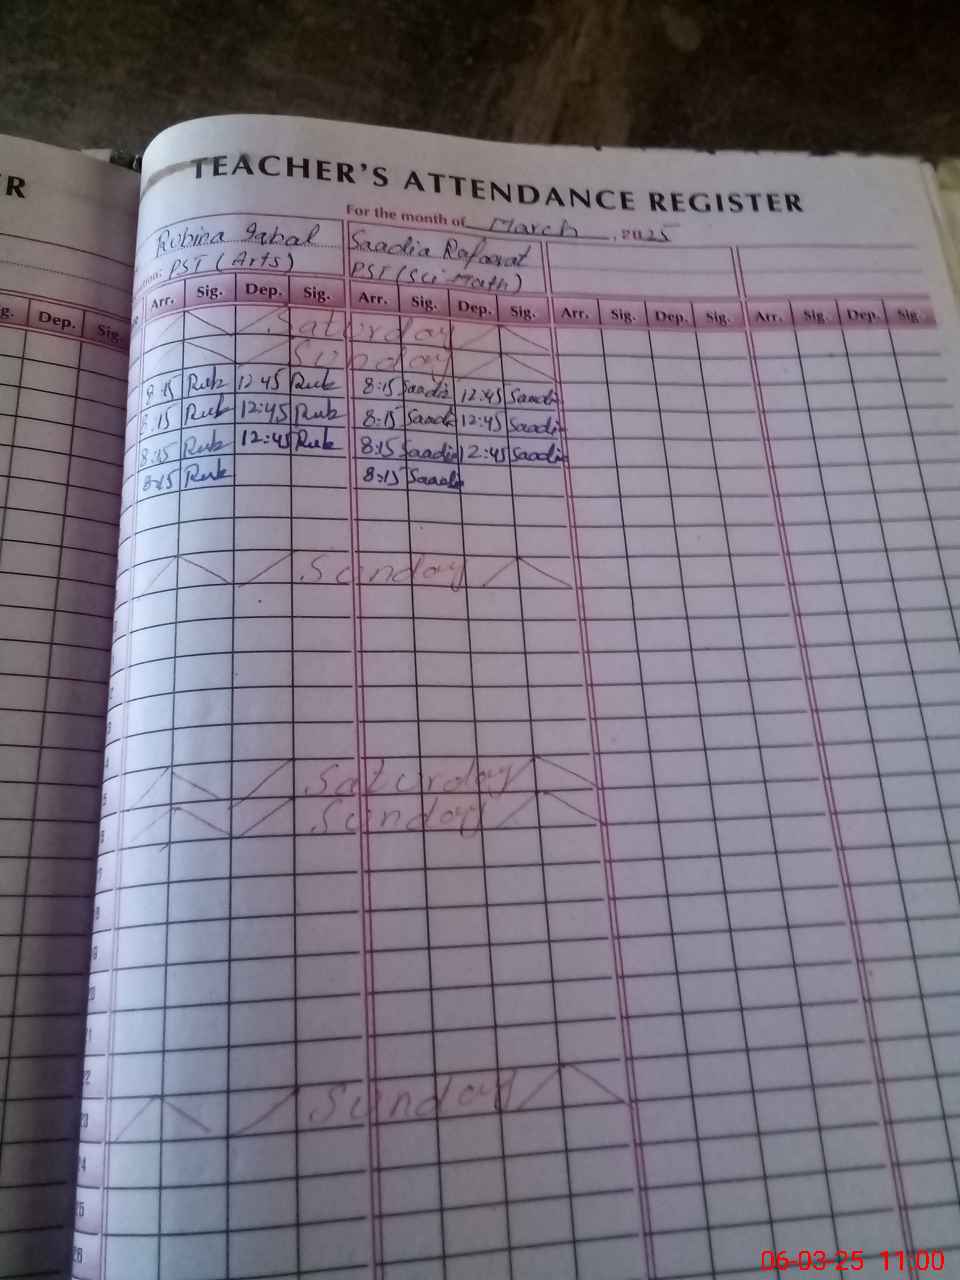 R
TEACHER'S ATTENDANCE REGISTER
For the month of March, 2025
Rubina Iqbal Saadia Rafaqat
PST (Arts) PST (Sci-Math)
g. Dep. Sig. Arr. Sig. Dep. Sig. Arr. Sig. Dep. Sig. Arr. Sig. Dep. Sig. Arr. Sig. Dep. Sig.
Saturday
Sunday
8:15 Rub 12:45 Rub 8:15 Saadia 12:45 Saadia
8:15 Rub 12:45 Rub 8:15 Saadia 12:45 Saadia
8:15 Rub 12:45 Rub 8:15 Saadia 12:45 Saadia
8:15 Rub 8:15 Saadia
Sunday
Saturday
Sunday
Sunday
23
25
26
06-03-25 11:00